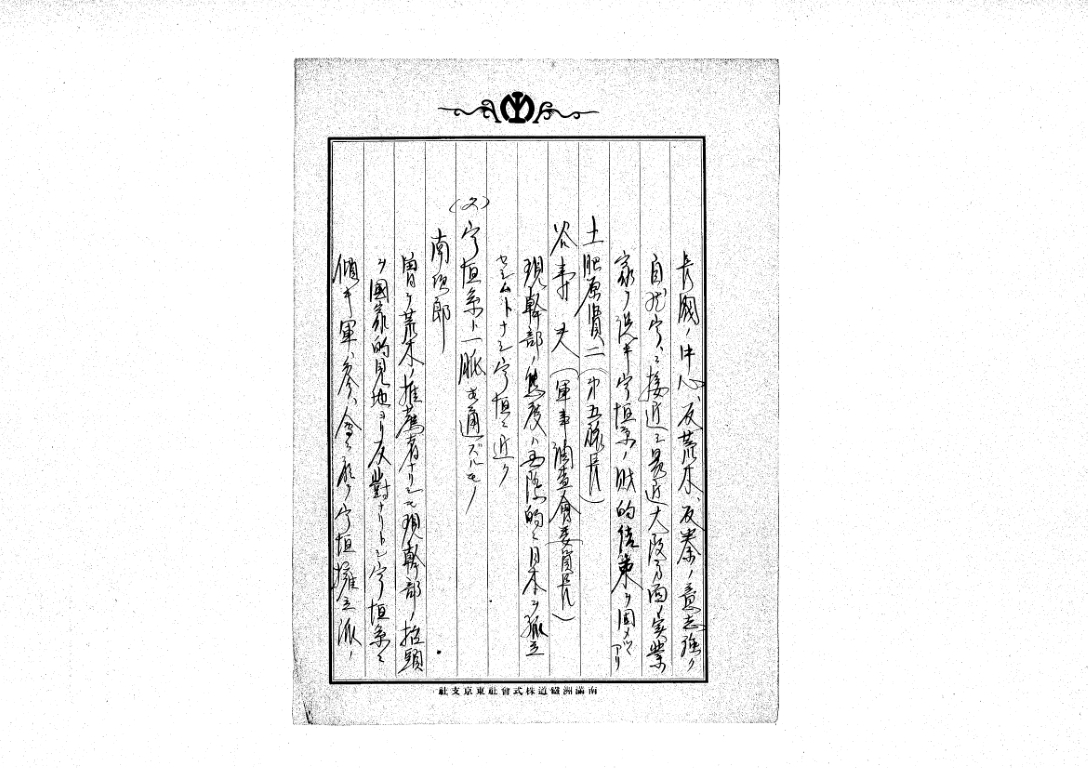 長閥ノ中心、反荒木、反秦ノ意志強ク
自然宇、ニ接近シ最近大阪方面ノ実業
家ヲ説キ宇垣系ノ財的結束ヲ固メツヽアリ
土肥原賢二(第五旅長)
谷寿夫(軍事調査会委員長)
現幹部ノ態度ハ国際的ニ日本ヲ孤立
セシムトナシ宇垣ニ近ク
(ヌ)宇垣系ト一脈相通ズルモノ
南次郎
曽テ荒木ノ推薦者ナリシモ現幹部ノ抬頭
ヲ國家的見地ヨリ反對ナリトシ宇垣系ニ
傾キ軍、参、会ニ於テ宇垣擁立派ノ
南滿洲鐵道株式會社東京支社